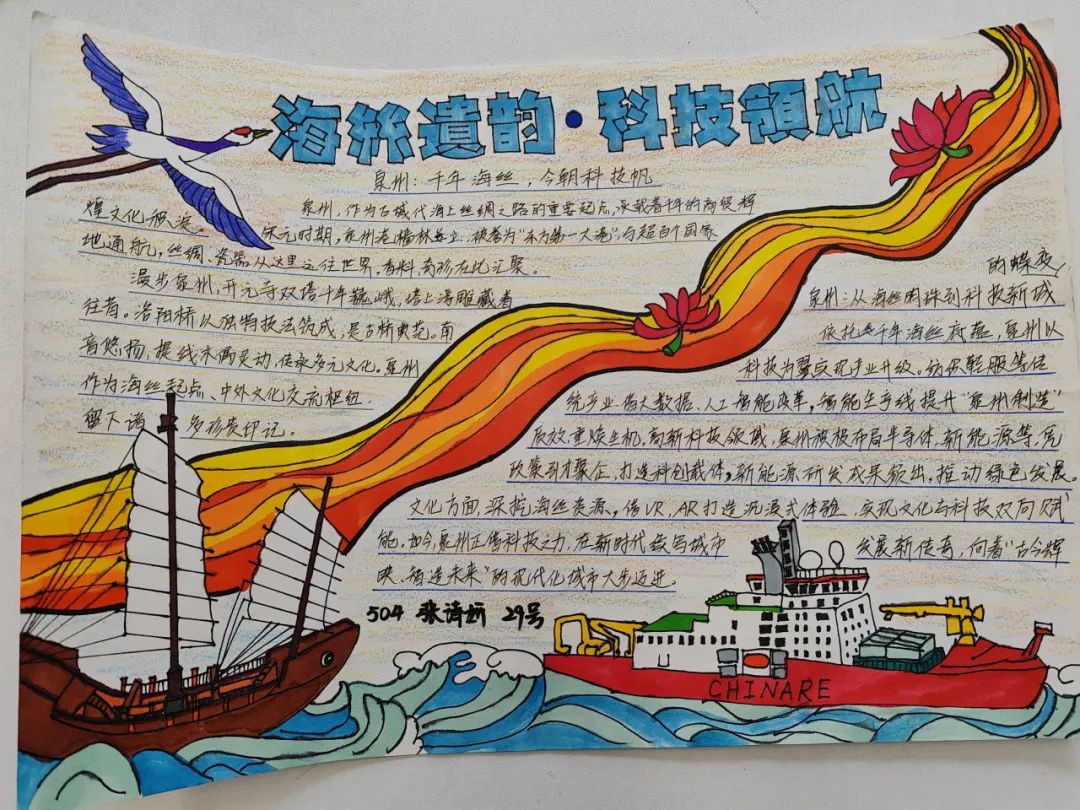 海丝遗韵·科技领航
泉州:千年海丝,今朝科技帆
泉州,作为古城代海上丝绸之路的重要起点,承载着千年的商贸辉
煌文化被淀。宋元时期,泉州港樯林耸立,被誉为“东方第一大港”,与超百个国家
地通航,丝绸、瓷器从这里运往世界,香料、奇珍在此汇聚。
漫步泉州,开元寺双塔千年巍峨,塔上浮雕藏着
往昔。洛阳桥以独特技法筑成,是古桥典范。南
音悠扬,提线木偶灵动,传承多元文化。泉州
作为海丝起点、中外文化交流枢纽,
留下诸多珍贵印记。
的蝶变
泉州:从海丝明珠到科技新城
依托千年海丝底蕴,泉州以
科技为翼实现产业升级。纺织鞋服等传
统产业借大数据、人工智能变革,智能生产线提升“泉州制造”
质效,重焕生机,高新科技领域,泉州积极布局半导体、新能源等,凭
政策引才聚企,打造科创载体,新能源研发成果颇出,推动绿色发展。
文化方面,深挖海丝资源,借VR、AR打造沉浸式体验,实现文化与科技双向赋
能,如今,泉州正借科技之力,在新时代续写城市发展新传奇,向着“古今辉
映、智造未来”的现代化城市大步迈进。
504 张诗妍 29号
CHINARE